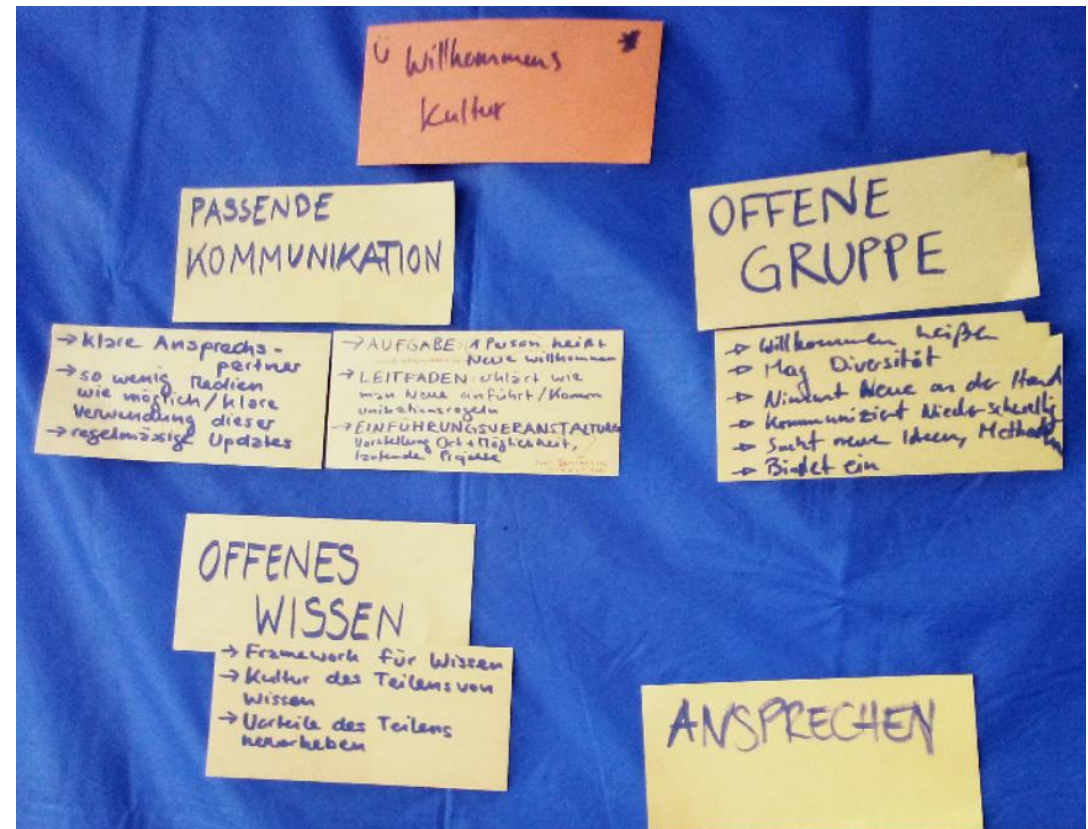 Ü Willkommens
Kultur
PASSENDE
KOMMUNIKATION
→ Klare Ansprechs-
partner
→ so wenig Medien
wie möglich / klare
Verwendung dieser
→ regelmässige Updates
→ AUFGABE: 1 Person heißt
Neue willkommen
→ LEITFADEN: erklärt wie
man Neue einführt / Komm
unikationsregeln
→ EINFÜHRUNGSVERANSTALTUNG
Vorstellung Ort + Möglichkeit,
laufende Projekte
OFFENE
GRUPPE
→ Willkommen heißen
→ Mag Diversität
→ Nimmt Neue an der Hand
→ Kommuniziert Niederschwellig
→ Sucht neue Ideen, Methoden
→ Bindet ein
OFFENES
WISSEN
→ Framework für Wissen
→ Kultur des Teilens von
Wissen
→ Vorteile des Teilens
hervorheben
ANSPRECHEN